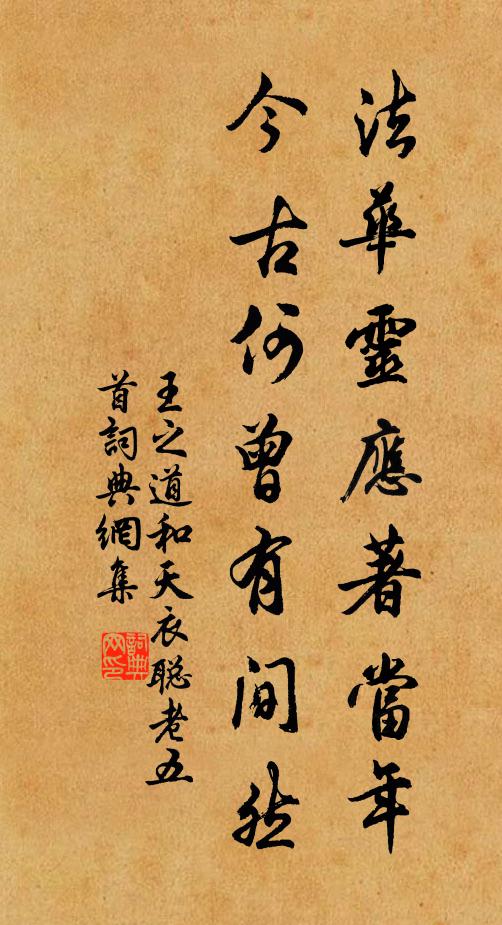 法華靈應著當年
今古何曾有間然
王之道和天衣聡老五
首詞典網集
詞典網印